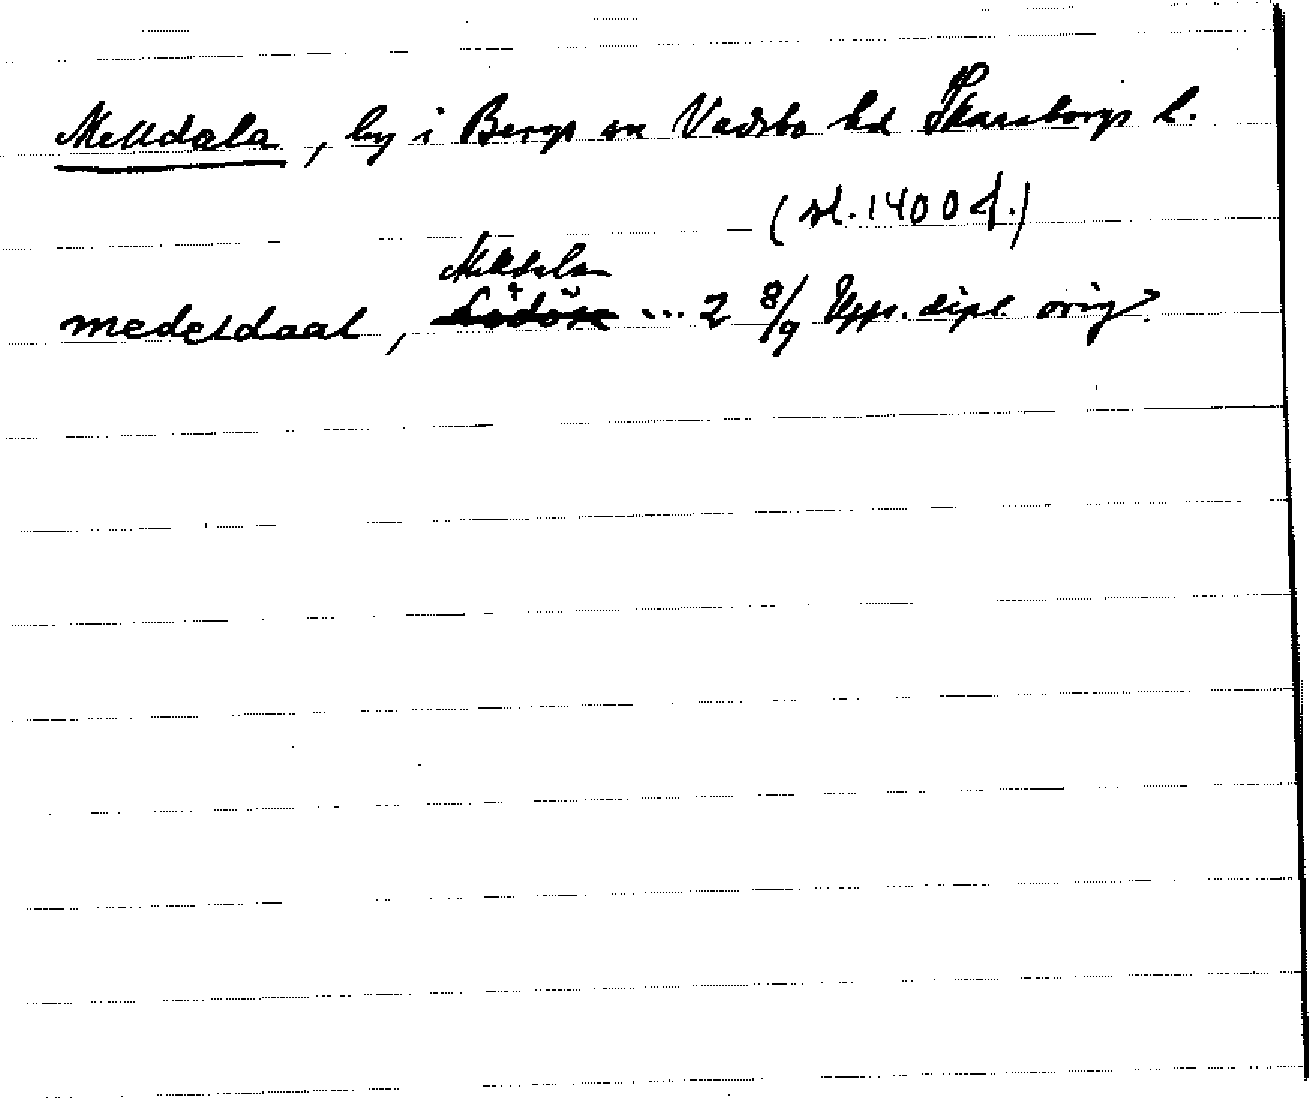 Melldala, by i Bergs sn Vadsbo hd Skaraborgs l.
(sl. 1400 t.)
Melldala
medeldaal, Lödöse ... 2 8/9 Upps. dipl. orig.